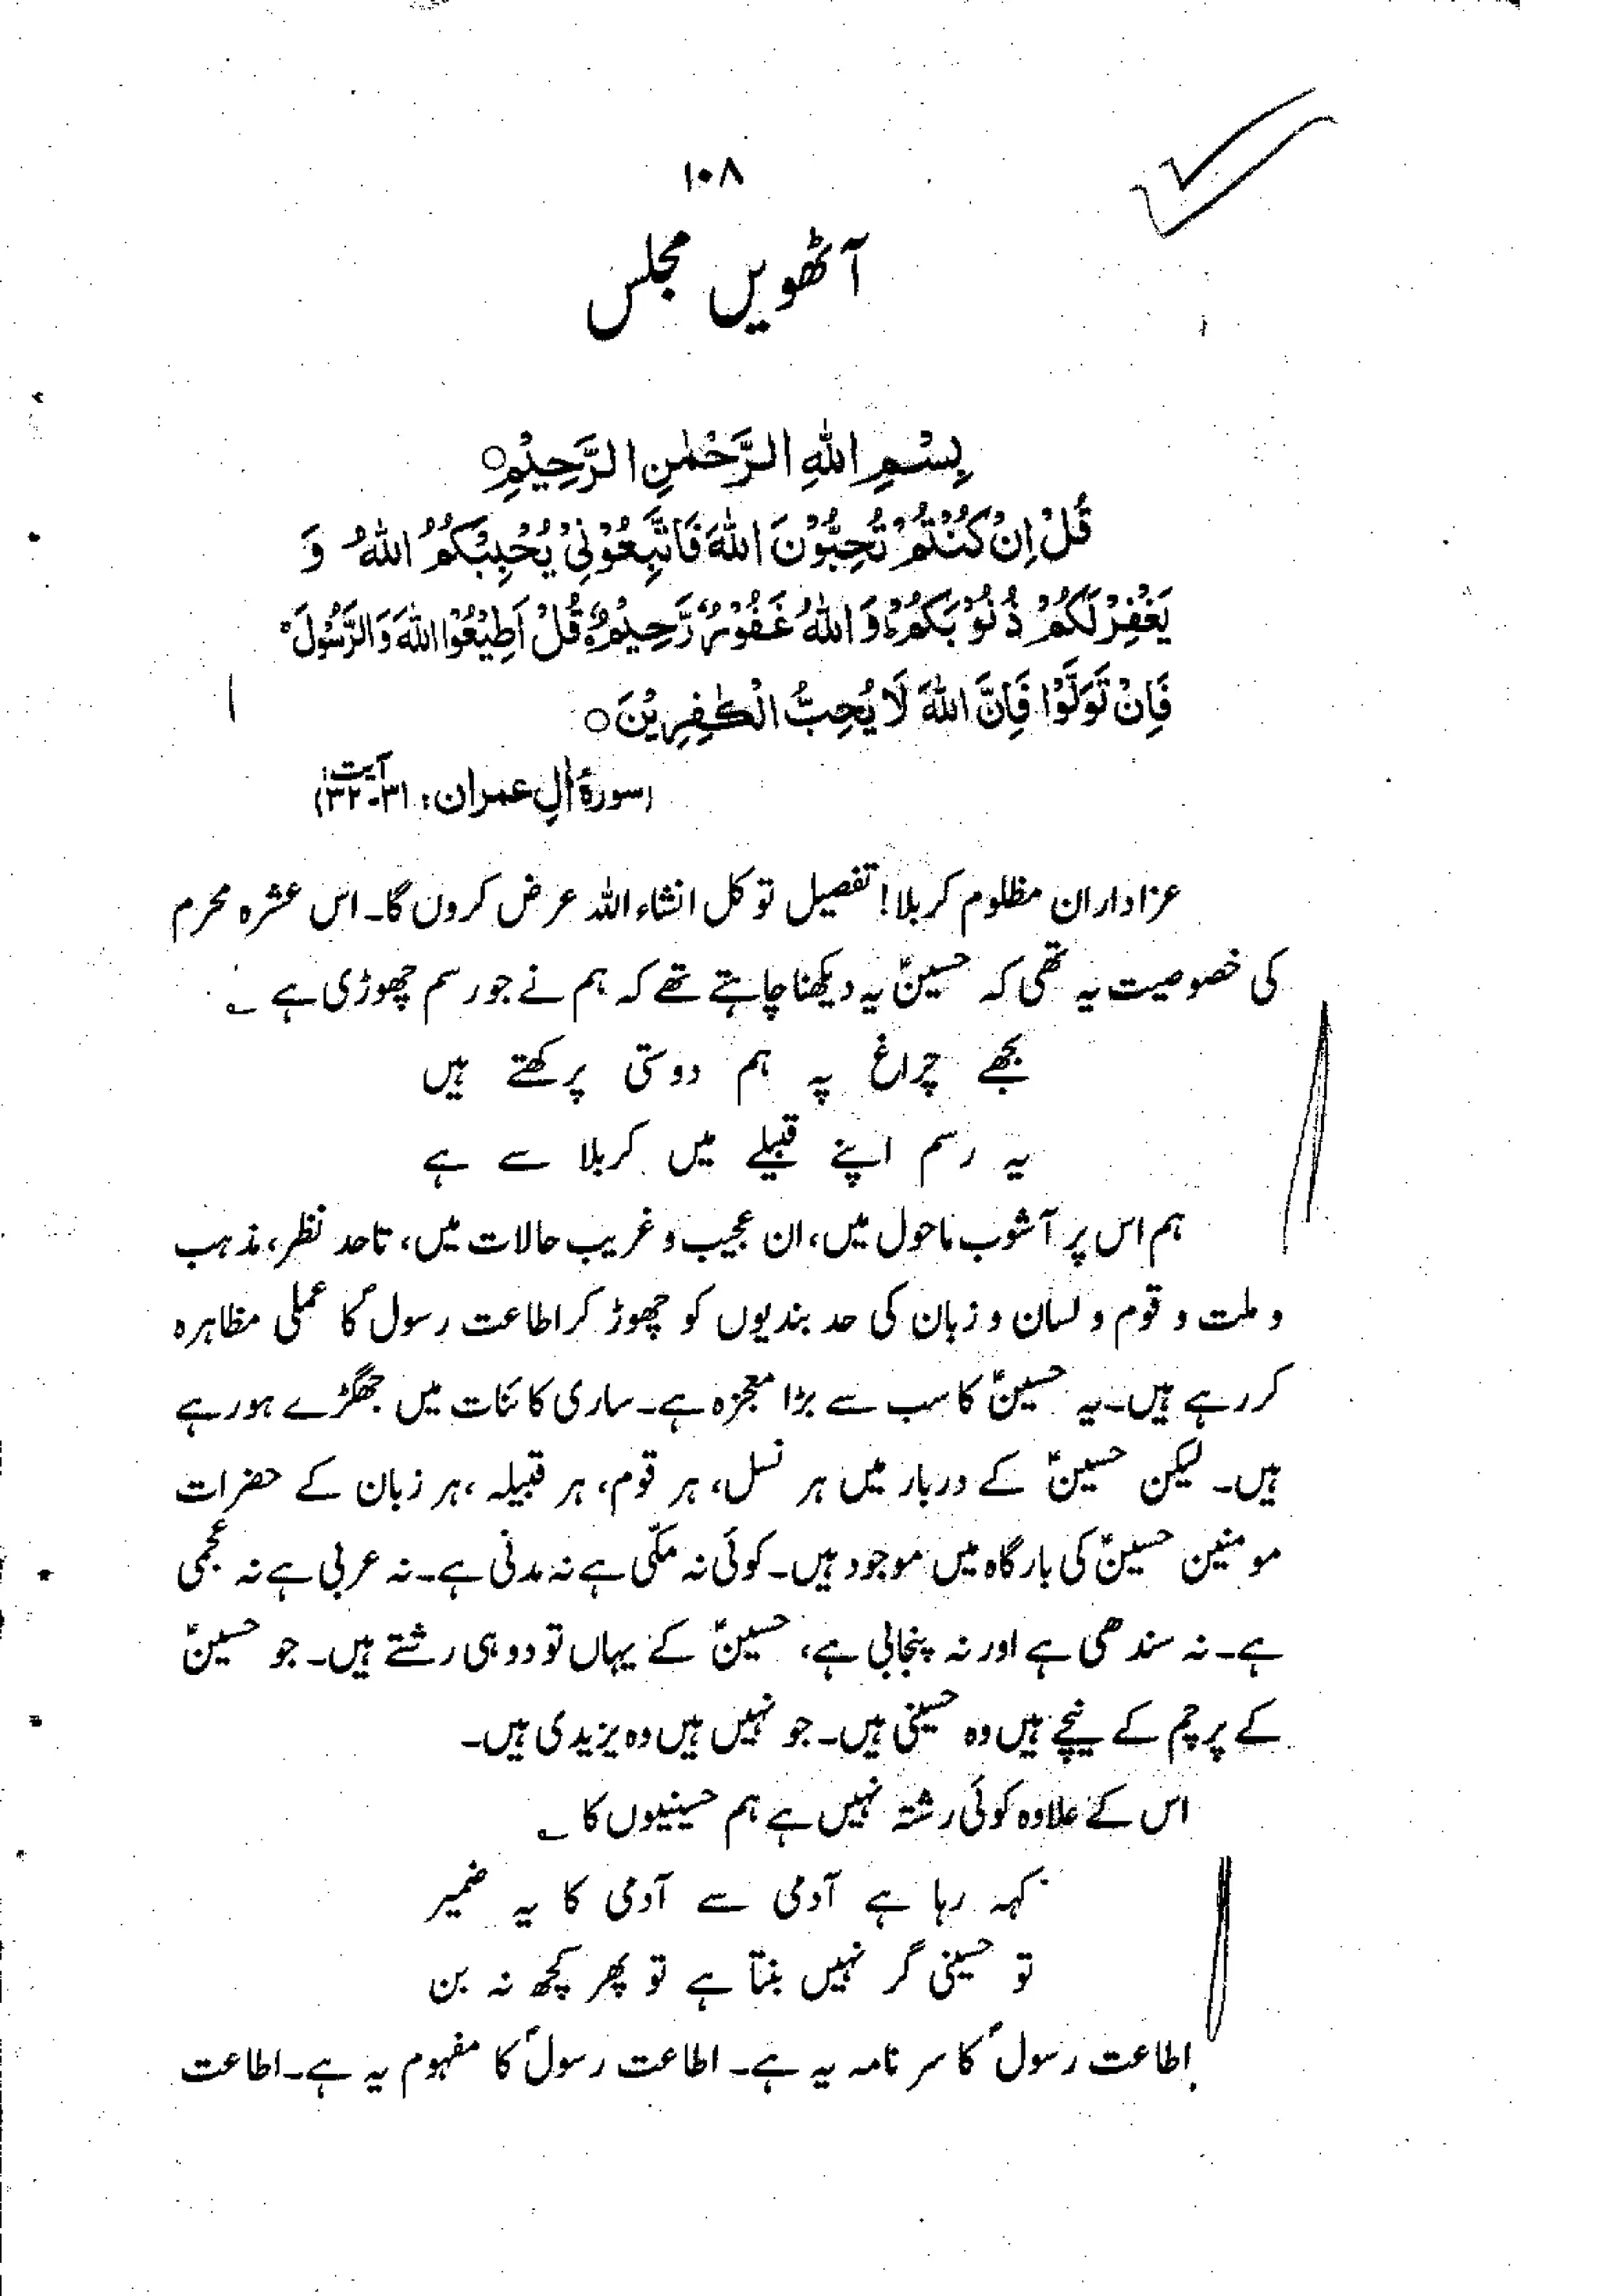 ۱۰۸
آٹھویں مجلس
بِسْمِ اللهِ الرَّحْمٰنِ الرَّحِيْمِ○
قُلْ اِنْ كُنْتُمْ تُحِبُّوْنَ اللهَ فَاتَّبِعُوْنِيْ يُحْبِبْكُمُ اللهُ وَ
يَغْفِرْ لَكُمْ ذُنُوْبَكُمْ ؕ وَاللهُ غَفُوْرٌ رَّحِيْمٌ ○ قُلْ اَطِيْعُوا اللهَ وَالرَّسُوْلَ ۚ
فَاِنْ تَوَلَّوْا فَاِنَّ اللهَ لَا يُحِبُّ الْكٰفِرِيْنَ ○
(سورۂ اٰلِ عمران: آیت: ۳۱۔۳۲)
عزاداران مظلوم کربلا! تفصیل تو کل انشاء اللہ عرض کروں گا۔ اس عشرہ محرم
کی خصوصیت یہ تھی کہ حسینؑ یہ دیکھنا چاہتے تھے کہ ہم نے جو رسم چھوڑی ہے ؎
بجھے چراغ پہ ہم دوستی پرکھتے ہیں
یہ رسم اپنے قبیلے میں کربلا سے ہے
ہم اس پر آشوب ماحول میں، ان عجیب و غریب حالات میں، تاحد نظر، مذہب
و ملت و قوم و لسان و زبان کی حد بندیوں کو چھوڑ کر اطاعت رسولؐ کا عملی مظاہرہ
کر رہے ہیں۔ یہ حسینؑ کا سب سے بڑا معجزہ ہے۔ ساری کائنات میں جھگڑے ہو رہے
ہیں۔ لیکن حسینؑ کے دربار میں ہر نسل، ہر قوم، ہر قبیلہ، ہر زبان کے حضرات
مومنین حسینؑ کی بارگاہ میں موجود ہیں۔ کوئی نہ مکّی ہے نہ مدنی ہے۔ نہ عربی ہے نہ عجمی
ہے۔ نہ سندھی ہے اور نہ پنجابی ہے، حسینؑ کے یہاں تو دو ہی رشتے ہیں۔ جو حسینؑ
کے پرچم کے نیچے ہیں وہ حسینی ہیں۔ جو نہیں ہیں وہ یزیدی ہیں۔
اس کے علاوہ کوئی رشتہ نہیں ہے ہم حسینیوں کا ؎
کہہ رہا ہے آدمی سے آدمی کا یہ ضمیر
تو حسینی گر نہیں بنتا ہے تو پھر کچھ نہ بن
اطاعت رسولؐ کا سر نامہ یہ ہے۔ اطاعت رسولؐ کا مفہوم یہ ہے۔ اطاعت